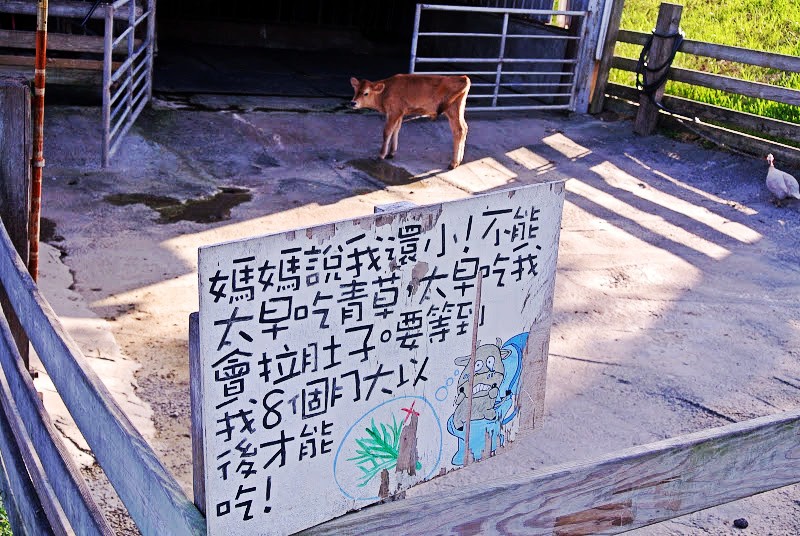 媽媽說我還小！不能
太早吃青草，太早吃我
會拉肚子。要等到
我8個月大以
後才能
吃！